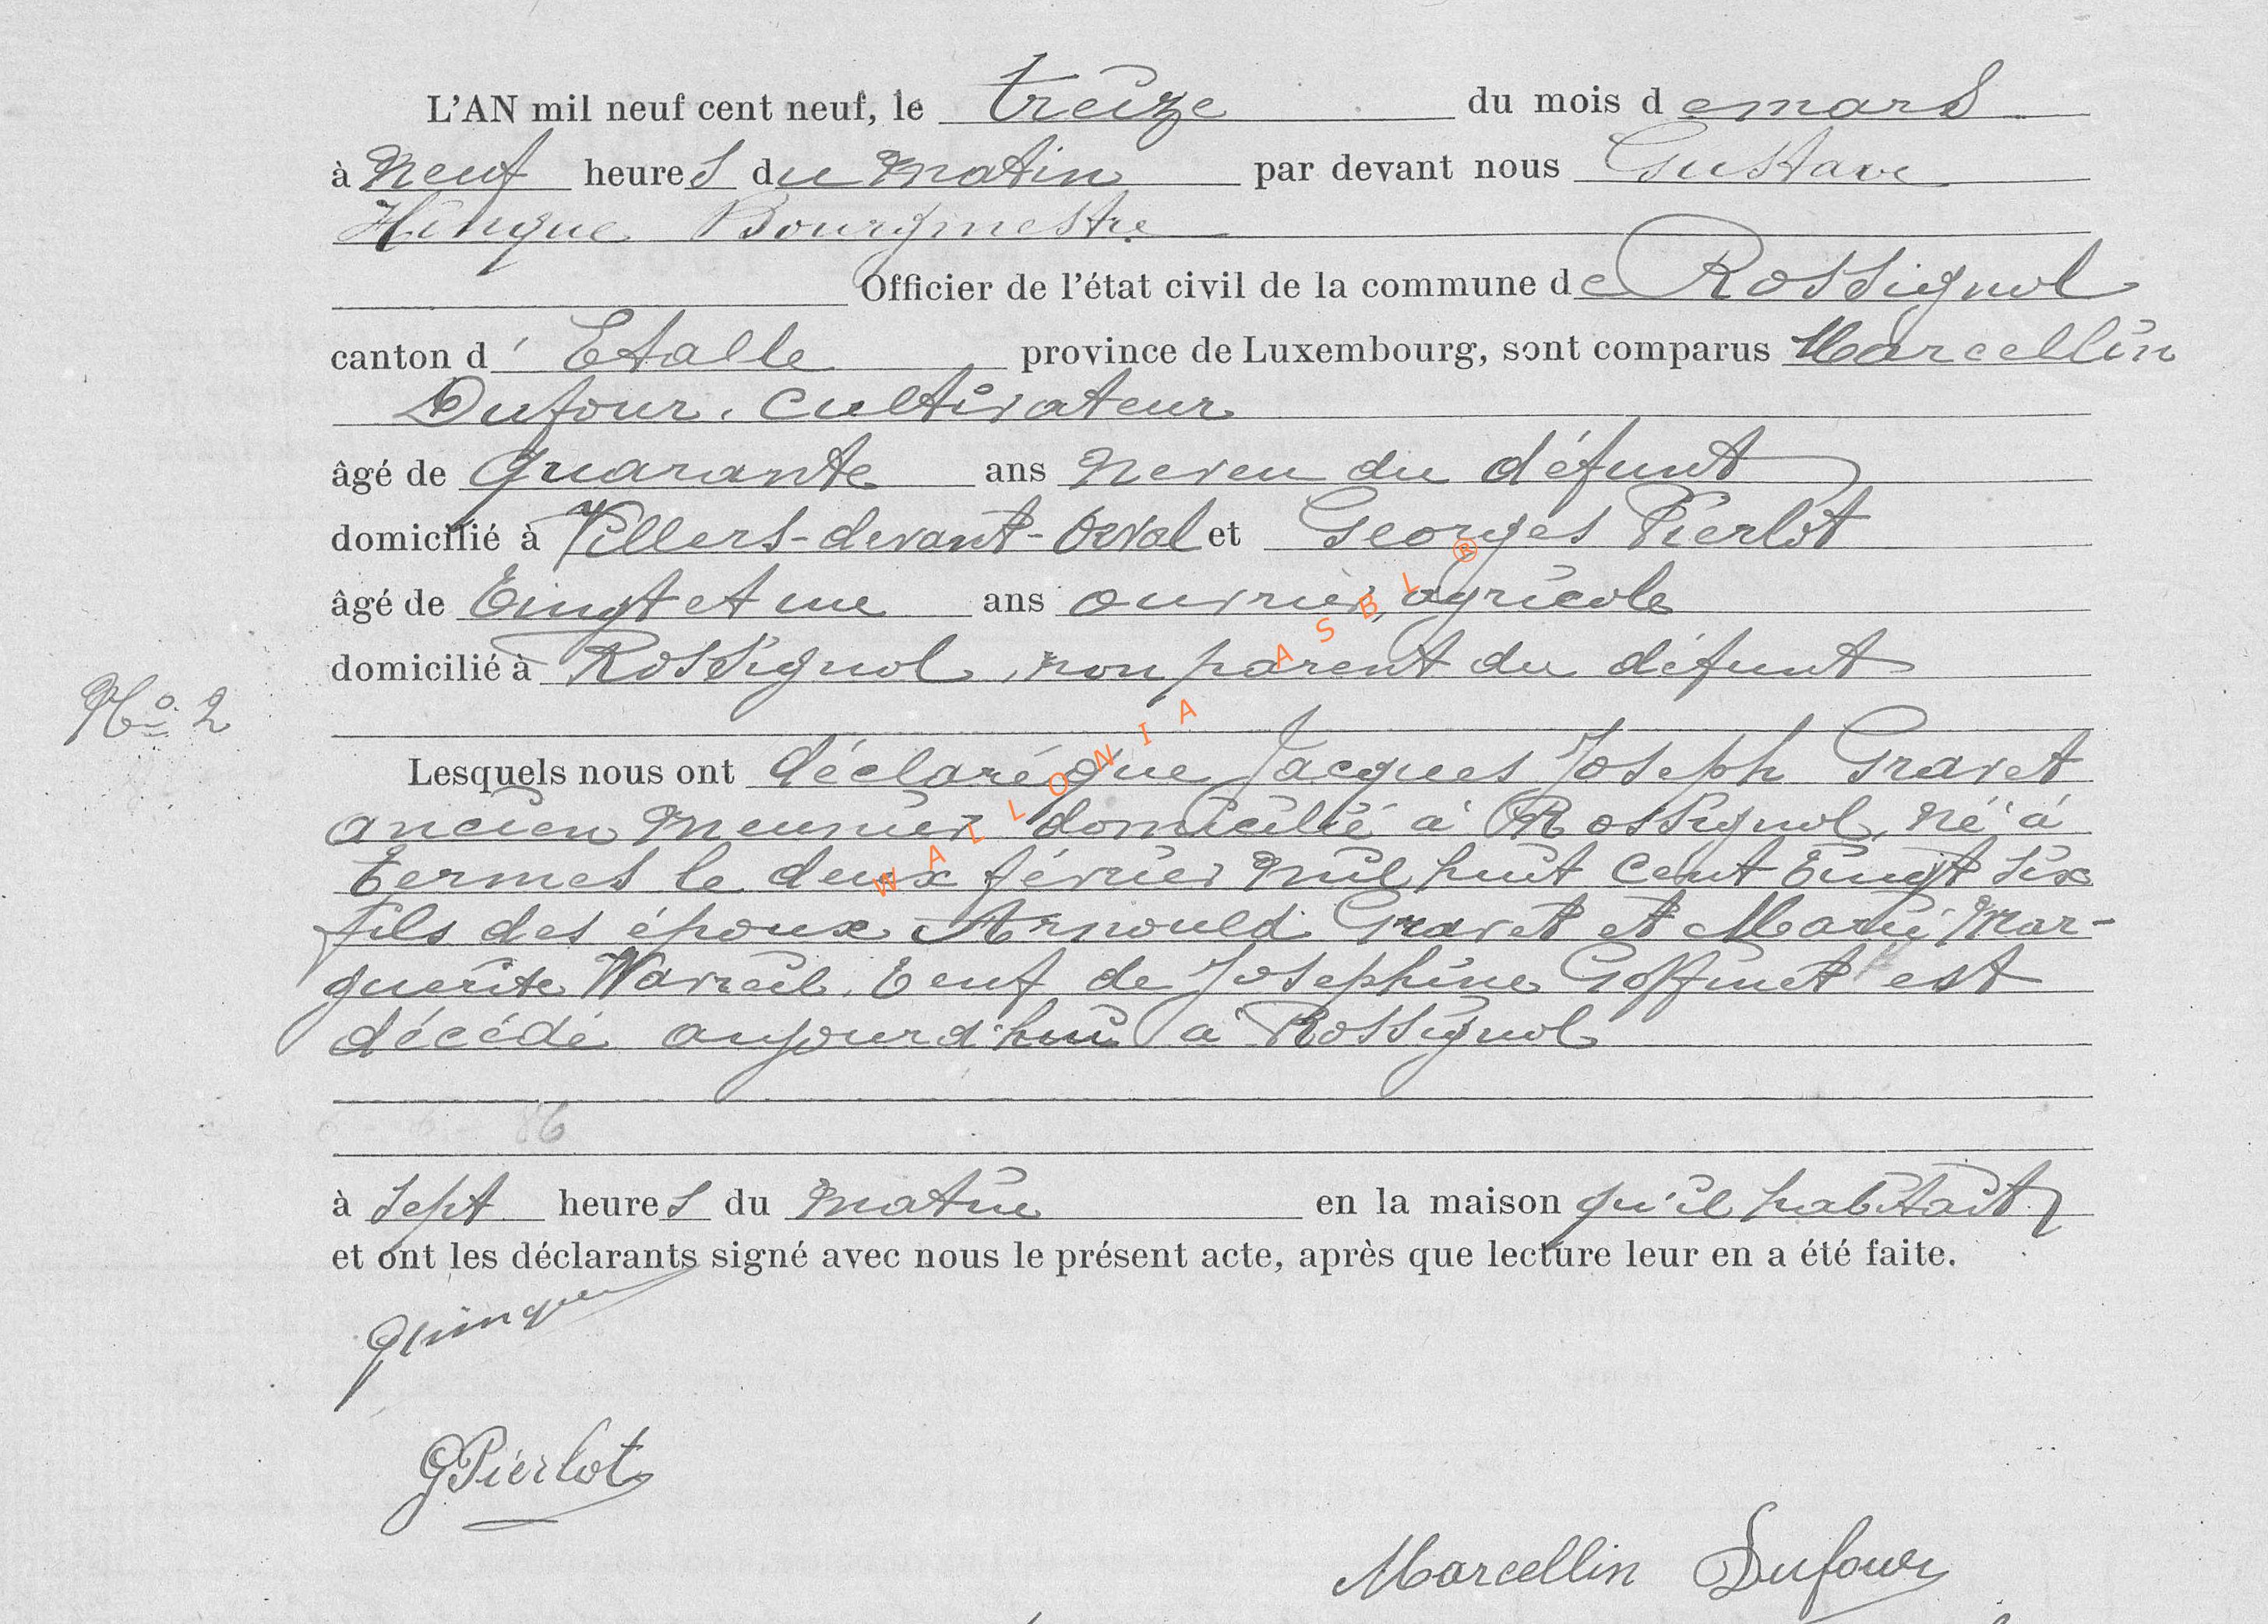 L'AN mil neuf cent neuf, le treize du mois de mars
à neuf heures du matin par devant nous Gustave
Hinque Bourgmestre
Officier de l'état civil de la commune de Rossignol
canton d'Etalle province de Luxembourg, sont comparus Marcellin
Dufour, cultivateur
âgé de quarante ans neveu du défunt
domicilié à Villers-devant-Orval et Georges Pierlot
âgé de vingt et un ans ouvrier agricole
domicilié à Rossignol, non parent du défunt
No 2
Lesquels nous ont déclaré que Jacques Joseph Gravet
ancien meunier domicilié à Rossignol, né à
Termes le deux février mil huit cent vingt six
fils des époux Arnould Gravet et Marie Mar-
guerite Warcil, veuf de Joséphine Goffinet est
décédé aujourd'hui à Rossignol
à sept heures du matin en la maison qu'il habitait
et ont les déclarants signé avec nous le présent acte, après que lecture leur en a été faite.
GHinque
GPierlot
Marcellin Dufour
WALLONIA ASBL ®